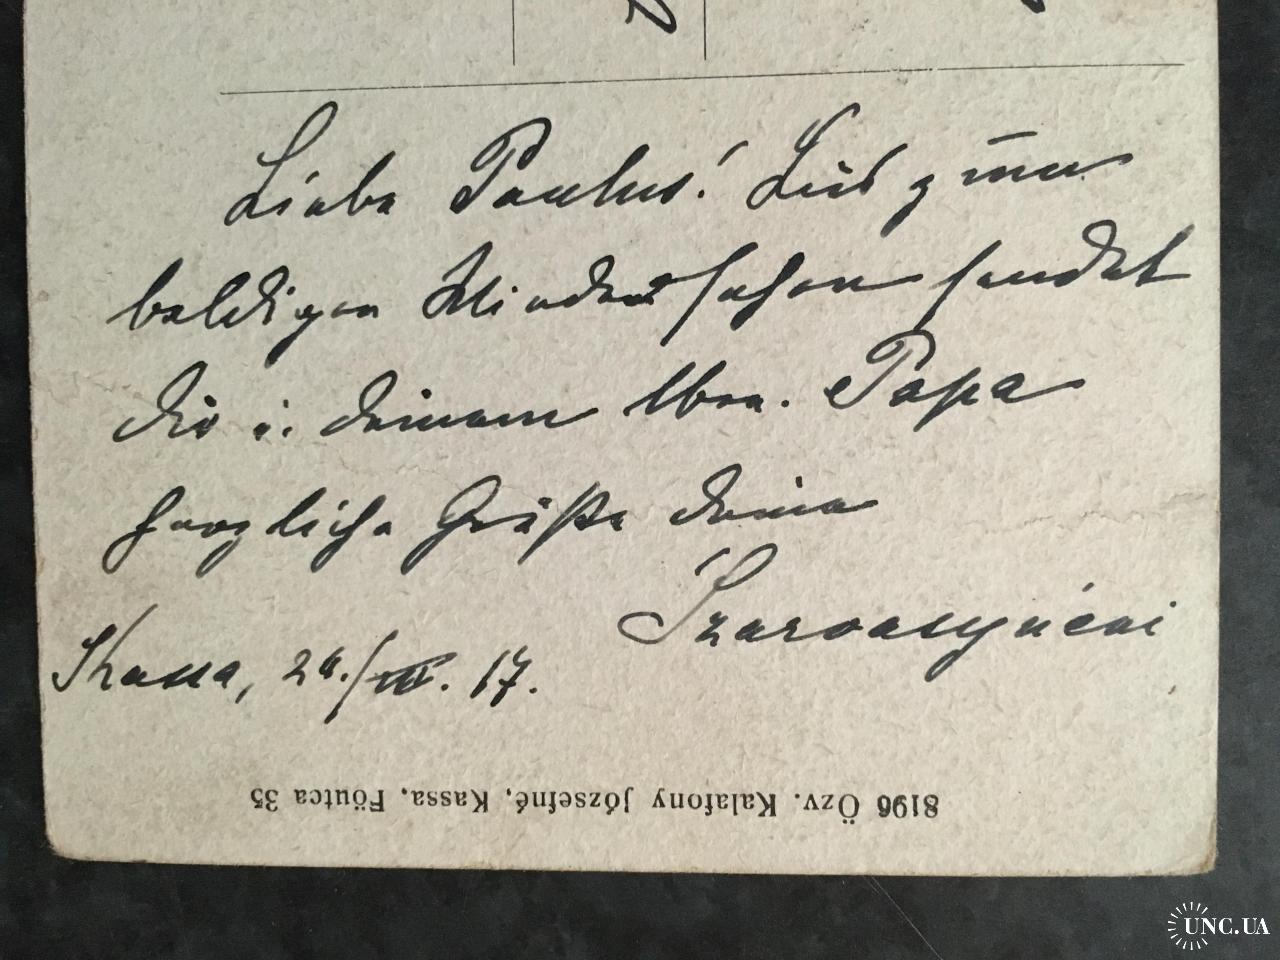 Liebe Paulus! Bis zum
baldigen Wiedersehen sendet
dir u. deinem lben. Papa
herzliche Grüße deine
Kassa, 24./VIII. 17.
8196 Özv. Kalafony Józsefné, Kassa, Föutca 35
UNC.UA